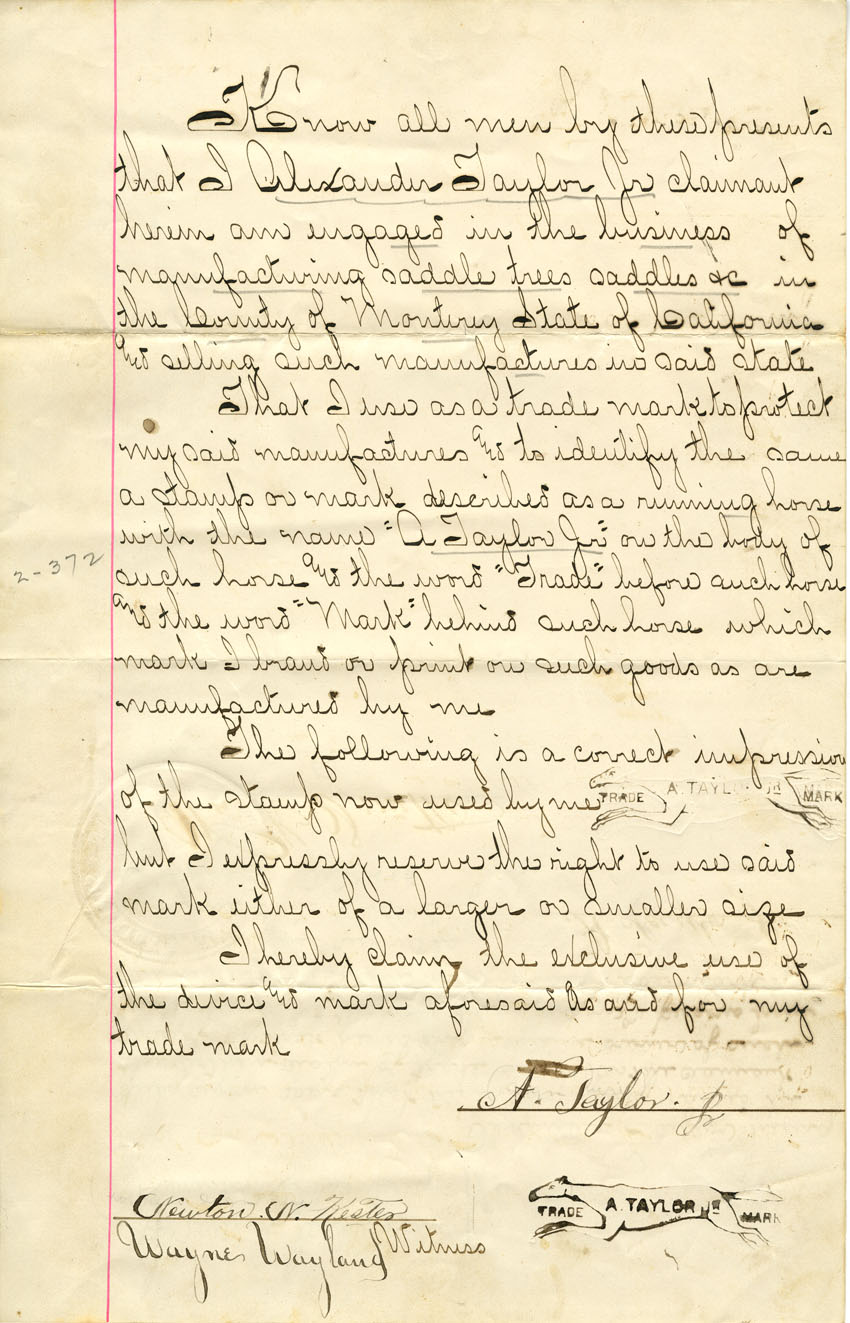 Know all men by these presents
that I Alexander Taylor Jr claimant
herein am engaged in the business of
manufacturing saddle trees saddles &c in
the County of Monterey State of California
and selling such manufactures in said state
That I use as a trade mark to protect
my said manufactures and to identify the same
a stamp or mark described as a running horse
with the name "A Taylor Jr" on the body of
2-372
such horse and the word "Trade" before such horse
and the word "Mark" behind such horse which
mark I brand or print on such goods as are
manufactured by me
The following is a correct impression
of the stamp now used by me TRADE A. TAYLOR JR MARK
but I expressly reserve the right to use said
mark either of a larger or smaller size
I hereby claim the exclusive use of
the divice and mark aforesaid as and for my
trade mark
A. Taylor. Jr
Newton. N. Kester
Wayne Wayland Witness
TRADE A. TAYLOR JR MARK